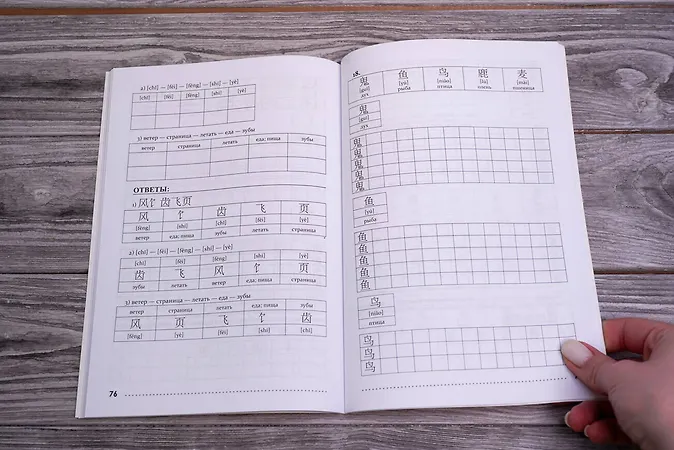 2) [chǐ] — [fēi] — [fēng] — [shí] — [yè]
[chǐ] [fēi] [fēng] [shí] [yè]
3) ветер — страница — летать — еда — зубы
ветер страница летать еда; пища зубы
ОТВЕТЫ:
1) 风饣齿飞页
风 饣 齿 飞 页
[fēng] [shí] [chǐ] [fēi] [yè]
ветер еда; пища зубы летать страница
2) [chǐ] — [fēi] — [fēng] — [shí] — [yè]
[chǐ] [fēi] [fēng] [shí] [yè]
齿 飞 风 饣 页
зубы летать ветер еда; пища страница
3) ветер — страница — летать — еда — зубы
ветер страница летать еда; пища зубы
风 页 飞 饣 齿
[fēng] [yè] [fēi] [shí] [chǐ]
76
鬼 鱼 鸟 鹿 麦
[guǐ] [yú] [niǎo] [lù] [mài]
дух рыба птица олень пшеница
鬼
[guǐ]
дух
鬼
鬼
鬼
鬼
鬼
鱼
[yú]
рыба
鱼
鱼
鱼
鱼
鱼
鸟
[niǎo]
птица
鸟
鸟
鸟